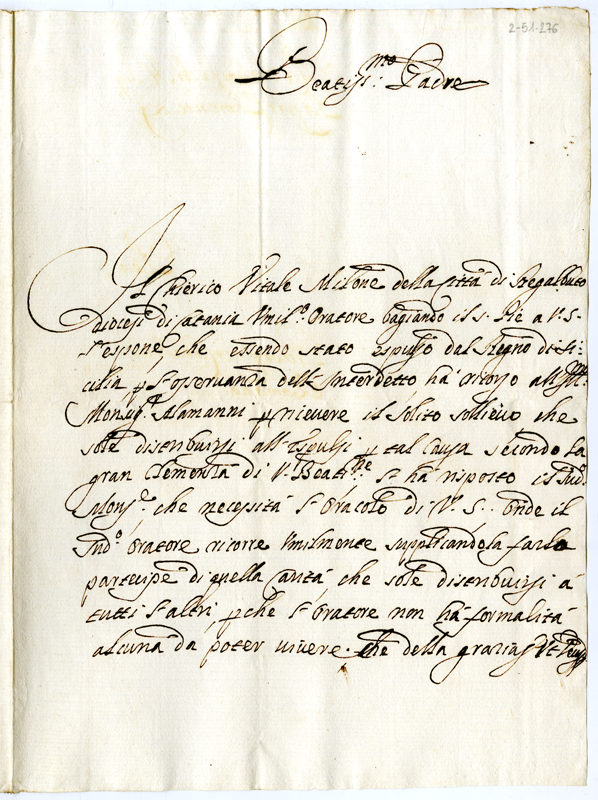 2-51-276
Beatiss:mo Padre
Il Chierico Vitale Milone della Città di Regalbuto
Diocesi di Catania Umil:o Oratore bagiando il S. Piè a V. S.
l'espone, che essendo stato espulso dal Regno di Si:
cilia p l'osservanza dell'Interdetto hà ricorso all'Ill:
Monsig:r Alamanni p ricievere il solito sollievo che
sole distribuirsi all'espulsi p tal causa secondo la
gran Clementia di V. Beat:ne l'hà risposto il sud:o
Mons:r che necessità l'oracolo di V. S.. onde il
sud:o oratore ricorre umilmente supplicandola farlo
partecipe di quella carità che sole distribuirsi à
tutti l'altri, p che l'oratore non hà formalità
alcuna dà poter vivere. Che della grazia Ut Deus